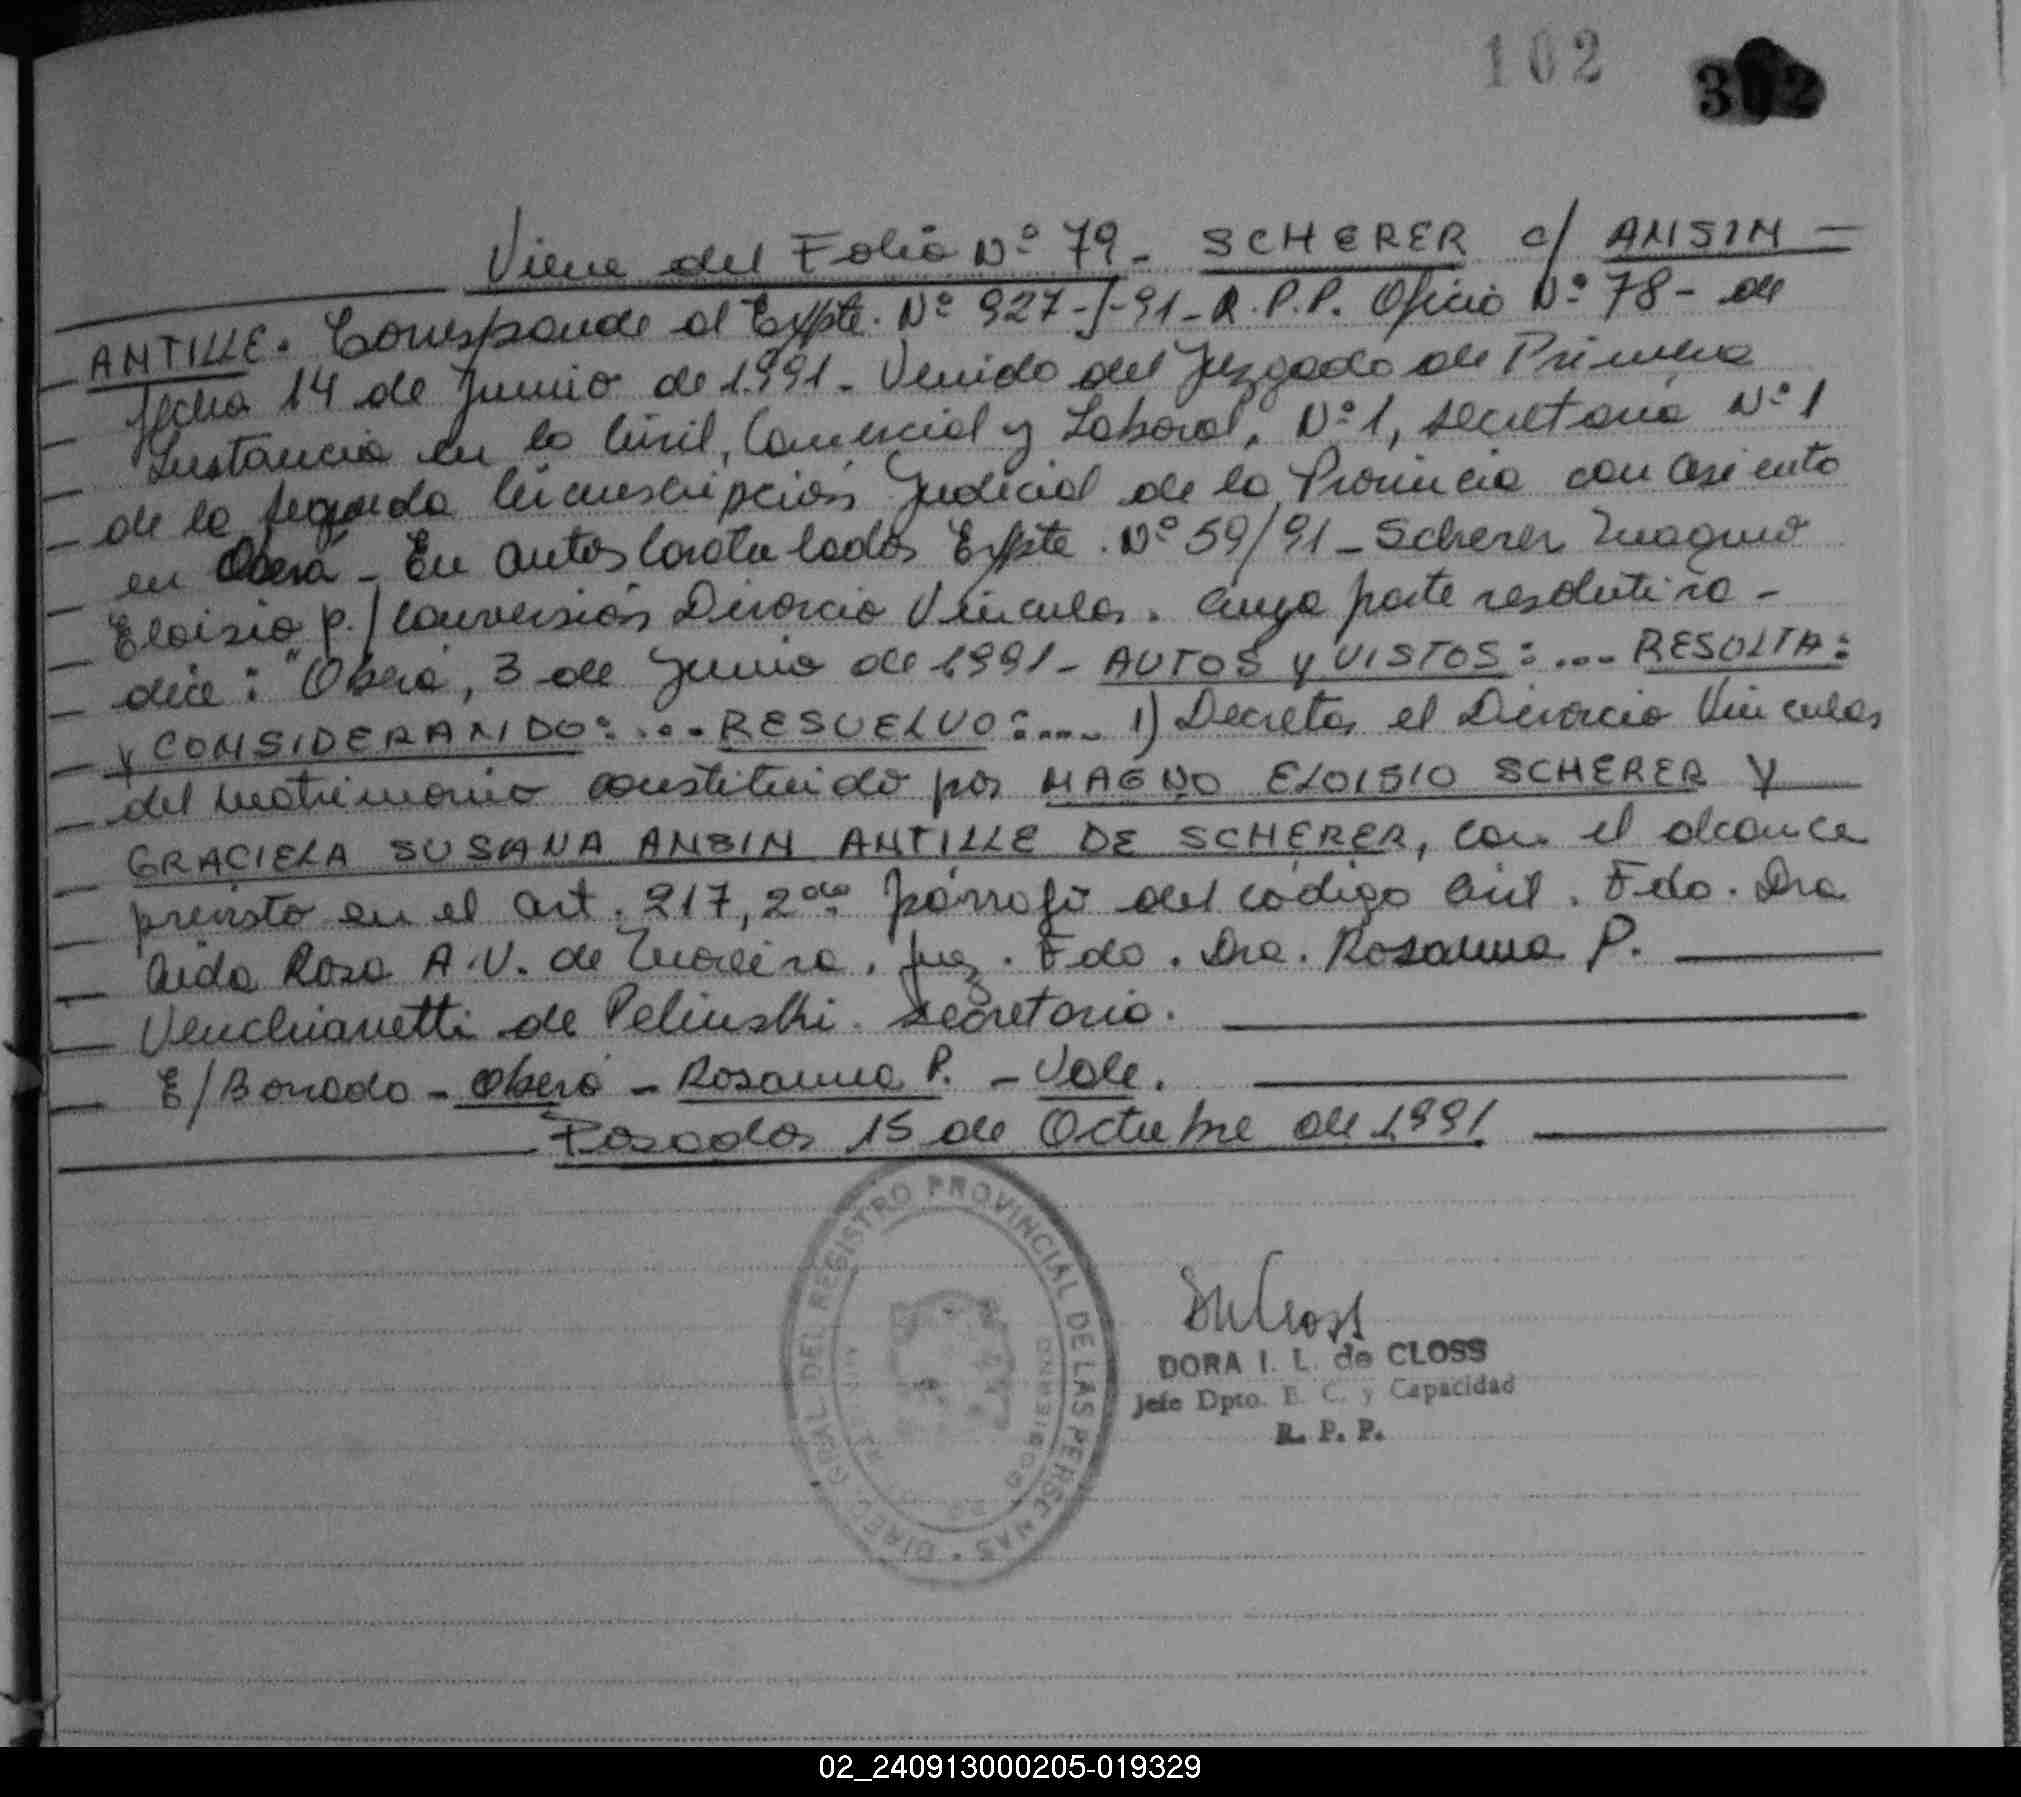 102
302
Viene del Folio Nº 79 - SCHERER c/ ANSIN -
ANTILLE. Corresponde al Expte. Nº 927-J-91 - R.P.P. Oficio Nº 78 - de
fecha 14 de Junio de 1.991 - Venido del Juzgado de Primera
Instancia en lo Civil, Comercial y Laboral, Nº 1, secretaria Nº 1
de la segunda Circunscripción Judicial de la Provincia con asiento
en Oberá - En autos Caratulados Expte. Nº 59/91 - Scherer Magno
Eloisio p./ Conversión Divorcio Vincular. Cuya parte resolutiva -
dice: "Oberá, 3 de Junio de 1.991 - AUTOS y VISTOS: .... RESULTA:
Y CONSIDERANDO: .... RESUELVO: .... 1) Decretar el Divorcio Vincular
del Matrimonio constituido por MAGNO ELOISIO SCHERER Y
GRACIELA SUSANA ANSIN ANTILLE DE SCHERER, con el alcance
previsto en el art. 217, 2do párrafo del código Civil. Fdo. Dra
Aida Rosa A.V. de Moreira. Juez. Fdo. Dra. Rosanna P.
Venchiarutti de Pelinski. Secretaria.
E/Borrado - Oberá - Rosanna P. - Vale.
Posadas 15 de Octubre de 1.991
DIREC. GRAL. DEL REGISTRO PROVINCIAL DE LAS PERSONAS
DORA I. L. de CLOSS
Jefe Dpto. E. C. y Capacidad
R. P. P.
02_240913000205-019329